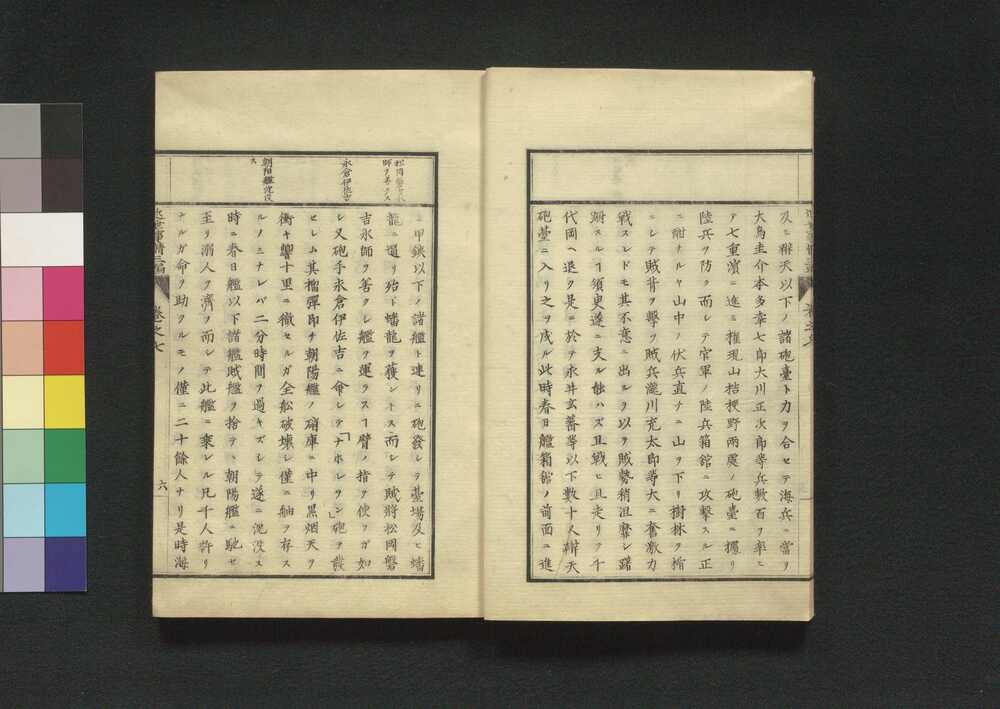 及ヒ辨天以下ノ諸砲臺ト力ヲ合セテ海兵ニ當リ
大鳥圭介本多幸七郎大川正次郎等兵數百ヲ率ヒ
テ七重濱ニ進ミ權現山桔梗野兩處ノ砲臺ニ據リ
陸兵ヲ防ク而シテ官軍ノ陸兵箱館ニ攻擊スル正
ニ酣ナルヤ山中ノ伏兵直チニ山ヲ下リ樹林ヲ楯
ニシテ賊背ヲ擊ク賊兵瀧川充太郎等大ニ奮激力
戰スレドモ其不意ニ出ルヲ以テ賊勢稍沮靡シ躊
蹰スルヿ須臾遂ニ支ル能ハズ且戰ヒ且走リテ千
代岡ヘ退ク是ニ於テ永井玄蕃等以下數十人辨天
砲臺ニ入リ之ヲ戍ル此時春日艦箱館ノ前面ニ進
ミ甲鐵以下ノ諸艦ト連リニ砲發シテ臺場及ヒ蟠
龍ニ逼リ殆ド蟠龍ヲ獲ントス而シテ賊將松岡磐
吉水師ヲ善クシ艦ヲ運ラスヿ臂ノ指ヲ使フガ如
シ又砲手永倉伊佐吉ニ命シテ「ナホレヲン」砲ヲ發
セシム其榴彈即チ朝陽艦ノ硝庫ニ中リ黑烟天ヲ
衝キ響十里ニ徹セルガ全舩破壞シ僅ニ舳ヲ存ス
ルノミナレバ二分時間ヲ過キズシテ遂ニ沈沒ス
時ニ春日艦以下諸艦賊艦ヲ捨テヽ朝陽艦ニ馳セ
至リ溺人ヲ濟フ而シテ此艦ニ乘レル凡千人許リ
ナルガ命ヲ助クルモノ僅ニ二十餘人ナリ是時海
松岡磐吉水
師ヲ善クス
永倉伊佐吉
朝陽艦沈沒
ス
卷之七
六